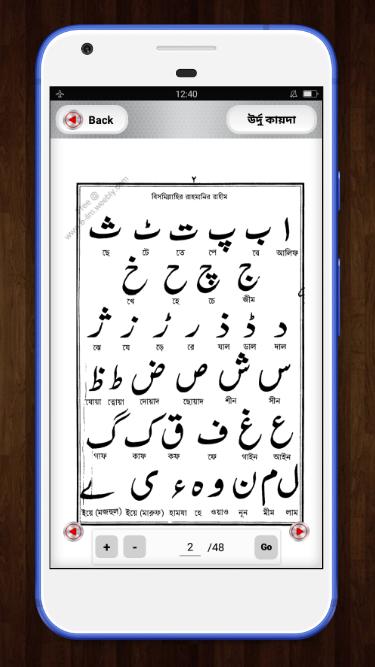 12:40
Back
উর্দু কায়দা
٢
বিসমিল্লাহির রাহমানির রাহীম
ا ب پ ت ٹ ث
আলিফ বে পে তে টে ছে
ج چ ح خ
জীম চে হে খে
د ڈ ذ ر ڑ ز ژ
দাল ডাল যাল রে ড়ে যে ঝে
س ش ص ض ط ظ
সীন শীন ছোয়াদ দোয়াদ ত্বোয়া যোয়া
ع غ ف ق ک گ
আইন গাইন ফে কফ কাফ গাফ
ل م ن و ہ ء ی ے
লাম মীম নূন ওয়াও হে হামযা ইয়ে (মারুফ) ইয়ে (মজহুল)
+ - 2 /48 Go